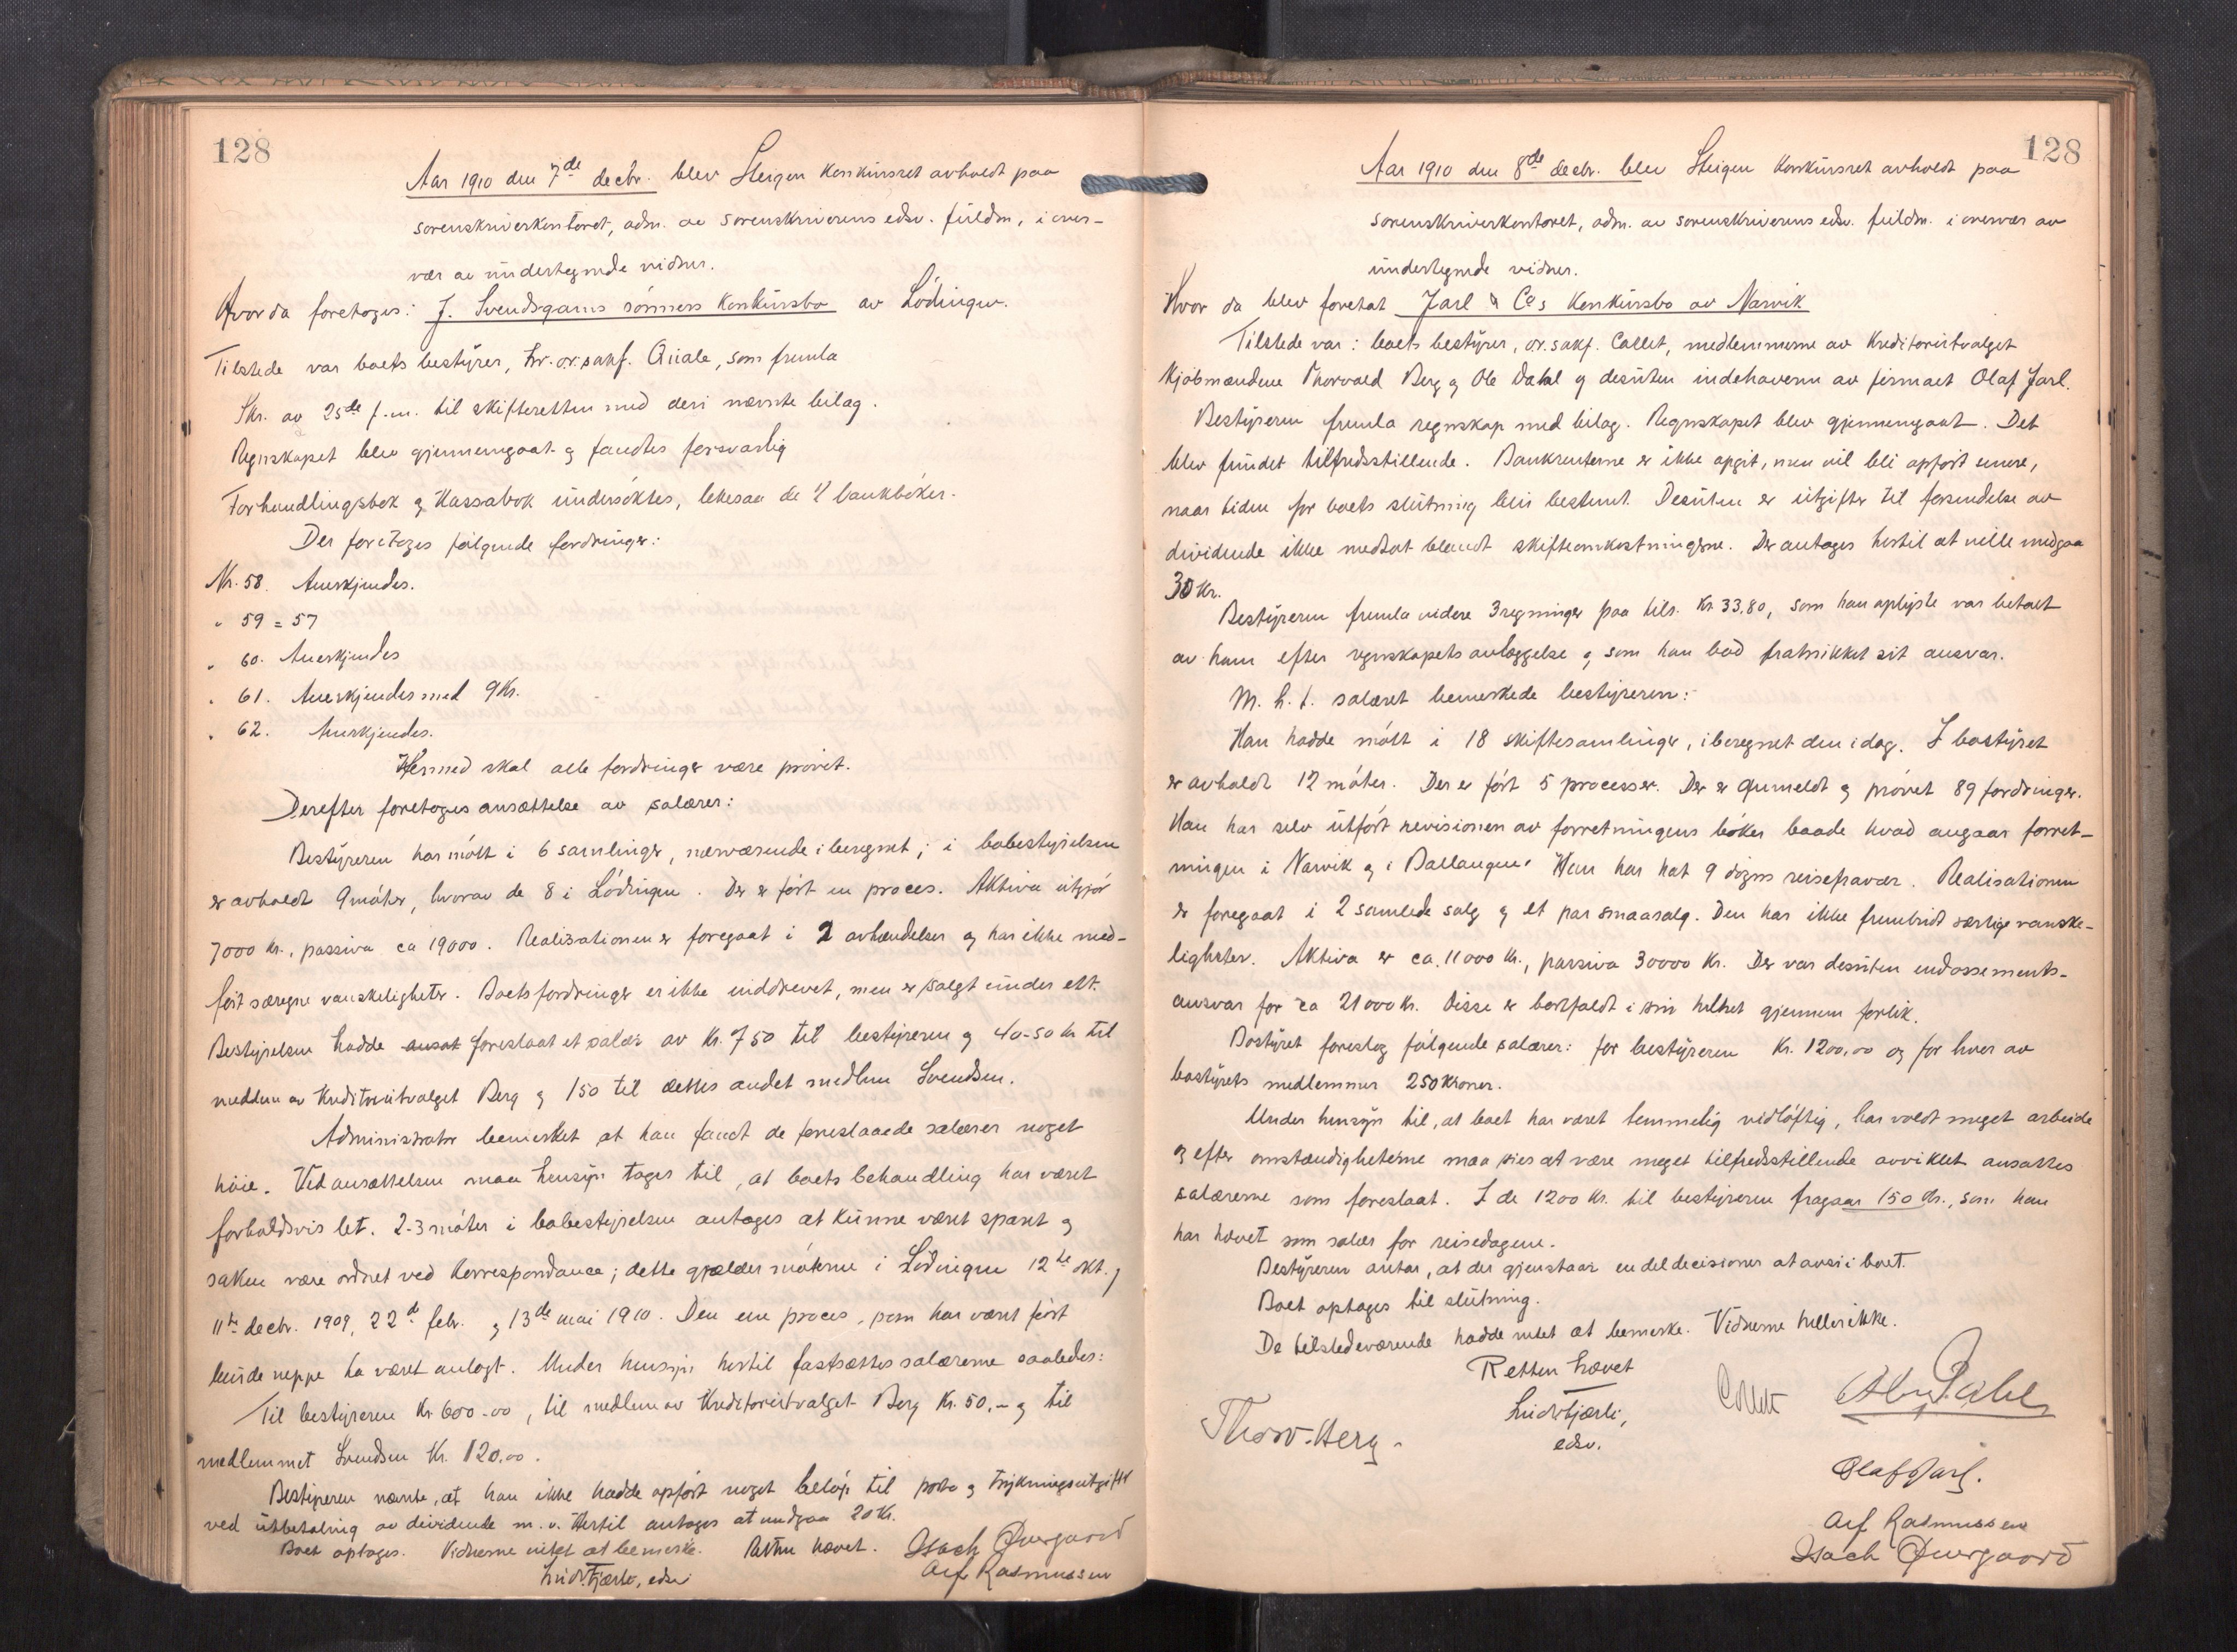 128
Aar 1910 den 7de decbr. blev Steigen Konkursret avholdt paa
sorenskriverkontoret, adm. av sorenskriverens edsv. fuldm, i over-
vær av undertegnede vidner.
Hvor da foretoges: J. Svendsgams sönners Konkursbo av Lödingen.
Tilstede var boets bestyrer, hr. o.r.sakf. Qviale, som fremla
Skr. av 25de f.m. til skifteretten med deri nævnte bilag.
Regnskapet blev gjennemgaat og fandtes forsvarlig
Forhandlingsbok og Kassabok undersöktes, likesaa de 2 bankböker.
Der foretoges fölgende fordringer:
Nr. 58. Anerkjendes.
" 59 = 57
" 60. Anerkjendes
" 61. Anerkjendes med 9 Kr.
" 62. Anerkjendes.
Hermed skal alle fordringer være prövet.
Derefter foretoges ansættelse av salærer:
Bestyreren har mött i 6 samlinger, nærværende iberegnet; i bobestyrelsen
er avholdt 9 möter, hvorav de 8 i Lödingen. Der er fört en proces. Aktiva utgjör
7000 kr., passiva ca 19000. Realisationen er foregaat i 2 avhændelser og har ikke med-
fört særegne vanskeligheter. Boets fordringer er ikke inddrevet, men er solgt under ett.
Bestyrelsen hadde ansat foreslaat et salær av Kr. 750 til bestyreren og 40-50 kr til
medlem av Kreditorutvalget Berg og 150 til dettes andet medlem Svendsen.
Administrator bemerket at han fandt de foreslaaede salærer noget
höie. Ved ansættelsen maa hensyn tages til, at boets behandling har været
forholdsvis let. 2-3 möter i bobestyrelsen antages at kunne været sparet og
saken være ordnet ved korrespondance; dette gjælder möterne i Lödingen 12te okt. og
11te decbr. 1909, 22de febr. og 13de mai 1910. Den ene proces, som har været fört
burde neppe ha været anlagt. Under hensyn hertil fastsættes salærerne saaledes:
Til bestyreren Kr. 600-00, til medlem av Kreditorutvalget Berg Kr. 50,- og til
medlemmet Svendsen Kr. 120.00.
Bestyreren nævnte, at han ikke hadde opfört noget belöp til porto og trykningsutgifter
ved utbetaling av dividende m.v. Hertil antages at medgaa 20 Kr.
Boet optages. Vidnerne intet at bemerke. Retten hævet. Isach Overgaard
edsv. Alf Rasmussen
128
Aar 1910 den 8de decbr. blev Steigen Konkursret avholdt paa
sorenskriverkontoret, adm. av sorenskriverens edsv. fuldm. i overvær av
undertegnede vidner.
Hvor da blev foretat Jarl & Co s Konkursbo av Narvik
Tilstede var: boets bestyrer, o.r.sakf. Collet, medlemmerne av Kreditorutvalget
Kjöbmændene Thorvald Berg og Ole Dahl og desuten indehaveren av firmaet Olaf Jarl.
Bestyreren fremla regnskap med bilag. Regnskapet blev gjennemgaat. Det
blev fundet tilfredsstillende. Bankrenterne er ikke opgit, men vil bli opfört senere,
naar tiden for boets slutning blir bestemt. Desuten er utgifter til forsendelse av
dividende ikke medtat blandt skifteomkostningerne. Der antages hertil at ville medgaa
30 Kr.
Bestyreren fremla videre 3 regninger paa tils. Kr. 33.80, som han oplyste var betalt
av ham efter regnskapets avlæggelse og som han bad fratrukket sit ansvar.
M. h. t. salæret bemerkede bestyreren:
Han hadde mött i 18 skiftesamlinger, iberegnet den idag. I bostyret
er avholdt 12 möter. Der er fört 5 processer. Der er anmeldt og prövet 89 fordringer.
Han har selv utfört revisionen av forretningens böker baade hvad angaar forret-
ningen i Narvik og i Ballangen. Han har hat 9 dögns reisefravær. Realisationen
er foregaat i 2 samlede salg og et par smaasalg. Den har ikke frembudt særlige vanske-
ligheter. Aktiva er ca. 11000 kr., passiva 30000 Kr. Der var desuten endossements-
ansvar for ca 21000 Kr. Disse er bortfaldt i sin helhet gjennem forlik.
Bostyret foreslog fölgende salærer: for bestyreren Kr. 1200.00 og for hver av
bostyrets medlemmer 250 Kroner.
Under hensyn til, at boet har været temmelig vidlöftig, har voldt meget arbeide
og efter omstændigheterne maa sies at være meget tilfredsstillende avviklet ansattes
salærerne som foreslaat. I de 1200 Kr. til bestyreren fragaar 150 Kr., som han
har hævet som salær for reisedagene.
Bestyreren antar, at der gjenstaar endel decisioner at avsi i boet.
Boet optages til slutning.
De tilstedeværende hadde intet at bemerke. Vidnerne hellerikke.
Retten hævet
edsv.
Thorv. Berg.
Collett
Ole Dahl
Olaf Jarl.
Alf Rasmussen
Isach Overgaard